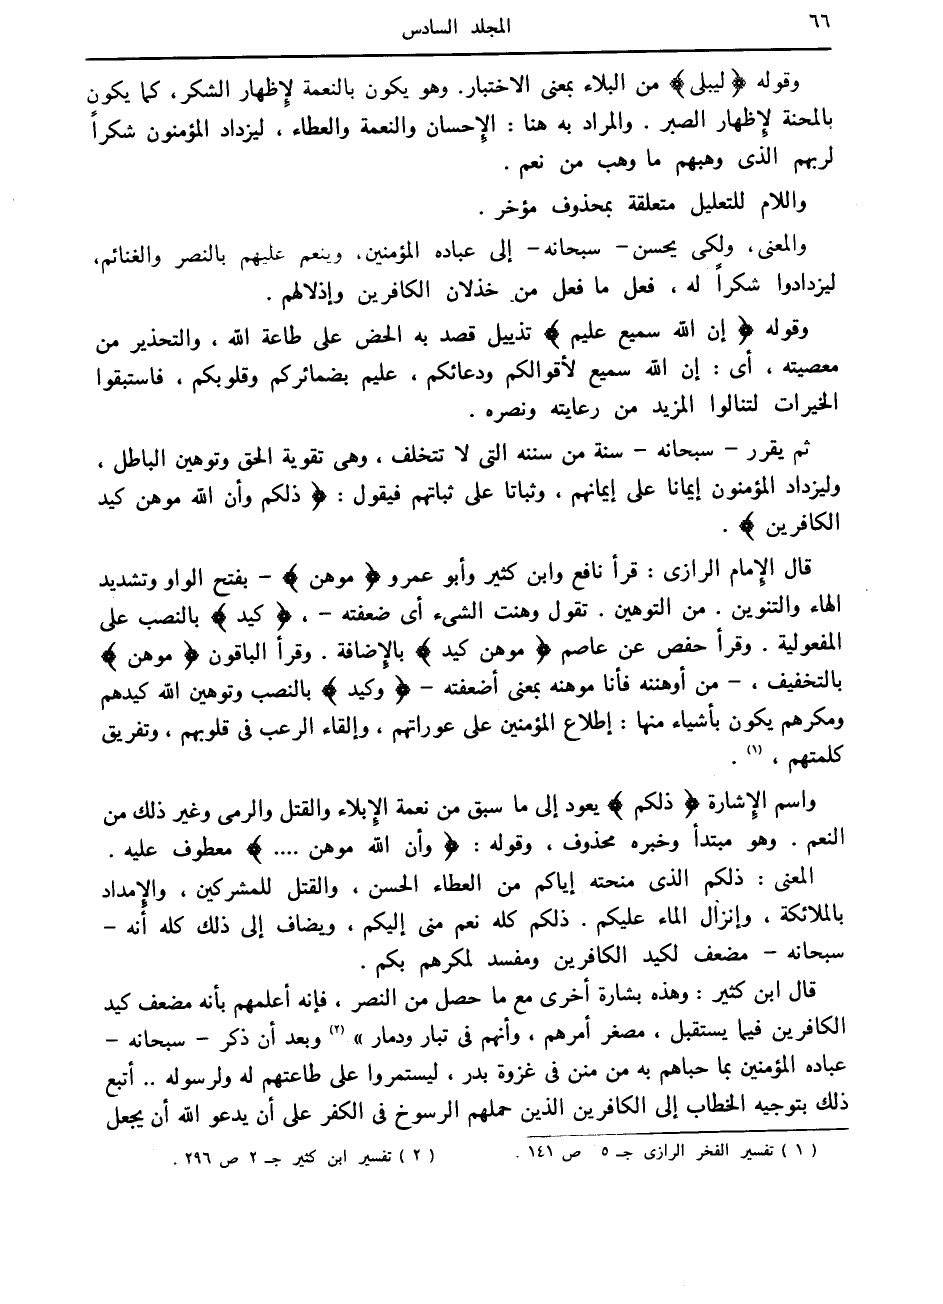 ٦٦
المجلد السادس
وقوله ﴿ ليبلى ﴾ من البلاء بمعنى الاختبار. وهو يكون بالنعمة لإظهار الشكر، كما يكون
بالمحنة لإظهار الصبر . والمراد به هنا : الإحسان والنعمة والعطاء ، ليزداد المؤمنون شكراً
لربهم الذى وهبهم ما وهب من نعم .
واللام للتعليل متعلقة بمحذوف مؤخر .
والمعنى، ولكى يحسن – سبحانه – إلى عباده المؤمنين، وينعم عليهم بالنصر والغنائم،
ليزدادوا شكراً له ، فعل ما فعل من خذلان الكافرين وإذلالهم .
وقوله ﴿ إن الله سميع عليم ﴾ تذييل قصد به الحض على طاعة الله ، والتحذير من
معصيته ، أى : إن الله سميع لأقوالكم ودعائكم ، عليم بضمائركم وقلوبكم ، فاستبقوا
الخيرات لتنالوا المزيد من رعايته ونصره .
ثم يقرر – سبحانه – سنة من سننه التى لا تتخلف ، وهى تقوية الحق وتوهين الباطل ،
وليزداد المؤمنون إيمانا على إيمانهم ، وثباتا على ثباتهم فيقول : ﴿ ذلكم وأن الله موهن كيد
الكافرين ﴾ .
قال الإمام الرازى : قرأ نافع وابن كثير وأبو عمرو ﴿ موهن ﴾ – بفتح الواو وتشديد
الهاء والتنوين . من التوهين . تقول وهنت الشىء أى ضعفته – ، ﴿ كيد ﴾ بالنصب على
المفعولية . وقرأ حفص عن عاصم ﴿ موهن كيد ﴾ بالإضافة . وقرأ الباقون ﴿ موهن ﴾
بالتخفيف ، – من أوهنته فأنا موهنه بمعنى أضعفته – ﴿ وكيد ﴾ بالنصب وتوهين الله كيدهم
ومكرهم يكون بأشياء منها : إطلاع المؤمنين على عوراتهم ، وإلقاء الرعب فى قلوبهم ، وتفريق
كلمتهم ، (١) .
واسم الإشارة ﴿ ذلكم ﴾ يعود إلى ما سبق من نعمة الإبلاء والقتل والرمى وغير ذلك من
النعم . وهو مبتدأ وخبره محذوف ، وقوله : ﴿ وأن الله موهن .... ﴾ معطوف عليه .
المعنى : ذلكم الذى منحته إياكم من العطاء الحسن ، والقتل للمشركين ، والإمداد
بالملائكة ، وإنزال الماء عليكم . ذلكم كله نعم منى إليكم ، ويضاف إلى ذلك كله أنه –
سبحانه – مضعف لكيد الكافرين ومفسد لمكرهم بكم .
قال ابن كثير : وهذه بشارة أخرى مع ما حصل من النصر ، فإنه أعلمهم بأنه مضعف كيد
الكافرين فيما يستقبل ، مصغر أمرهم ، وأنهم فى تبار ودمار » (٢) وبعد أن ذكر – سبحانه –
عباده المؤمنين بما حباهم به من منن فى غزوة بدر ، ليستمروا على طاعتهم له ولرسوله .. أتبع
ذلك بتوجيه الخطاب إلى الكافرين الذين حملهم الرسوخ فى الكفر على أن يدعو الله أن يجعل
( ١ ) تفسير الفخر الرازى جـ ٥ ص ١٤١ . ( ٢ ) تفسير ابن كثير جـ ٢ ص ٢٩٦ .